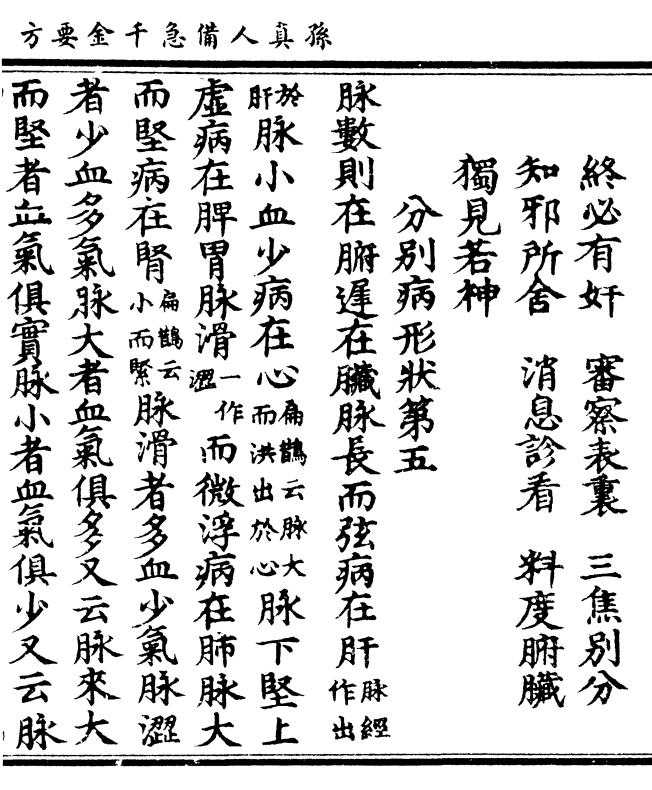 孫真人備急千金要方
終必有奸　審察表裏　三焦別分
知邪所舍　消息診看　料度腑臟
獨見若神
分别病形狀第五
脉數則在腑遲在臟脉長而弦病在肝脉經作出
於肝脉小血少病在心扁鵲云脉大而洪出於心脉下堅上
虚病在脾胃脉滑一作澀而微浮病在肺脉大
而堅病在腎扁鵲云小而緊脉滑者多血少氣脉澀
者少血多氣脉大者血氣俱多又云脉來大
而堅者血氣俱實脉小者血氣俱少又云脉